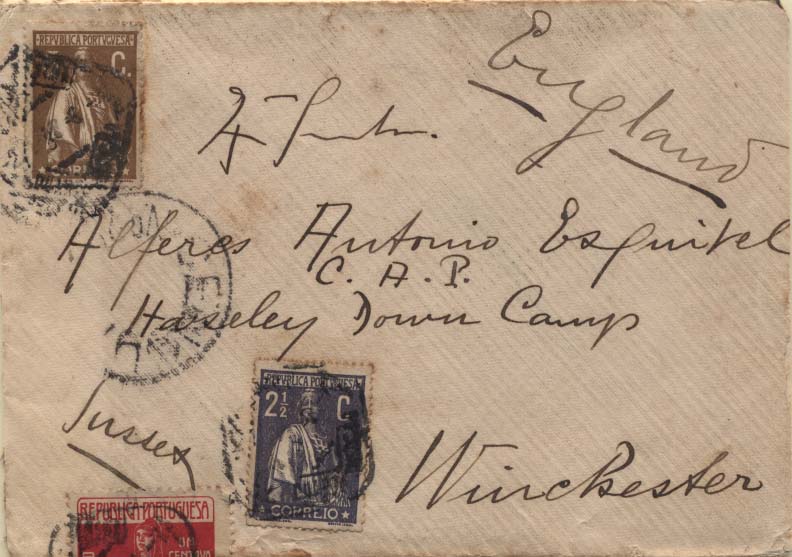 REPUBLICA PORTUGUESA
C.
CORREIO
England
Alferes Antonio Esquivel
C. A. P.
Haseley Down Camp
REPUBLICA PORTUGUESA
2½ C.
CORREIO
Sussex
Winchester
REPUBLICA PORTUGUESA
UM
CENTAVO